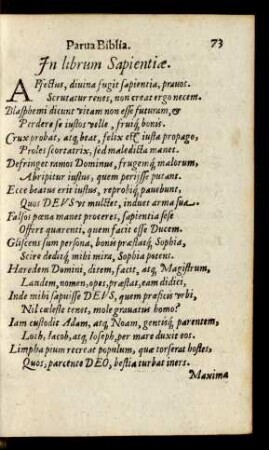 Parua Biblia. 73
In librum Sapientiæ.
AFfectus, divina fugit sapientia, pravos.
Scrutatur renes, non creat ergo necem.
Blasphemi dicunt vitam non esse futuram, &
Perdere se iustos velle, fruiq́ bonis.
Crux probat, atq́ beat, felix est iusta propago,
Proles scortatrix, sed maledicta manet.
Defringet ramos Dominus, frugemq́ malorum,
Abripitur iustus, quem perijsse putant.
Ecce beatus erit iustus, reprobiq́ pavebunt,
Quos DEVS vt mulctet, induet arma sua.
Falsos pœna manet proceres, sapientia sese
Offert quærenti, quem facit esse Ducem.
Gliscens sum persona, bonis præstatq́ Sophia,
Scire deditq́ mihi mira, Sophia potens.
Hæredem Domini, ditem, facit, atq́ Magistrum,
Laudem, nomen, opes, præstat, eam didici,
Inde mihi sapuisse DEVS, quem præficis vrbi,
Nil cæleste tenet, mole gravatus homo?
Iam custodit Adam, atq́ Noam, gentisq́ parentem,
Loth, Iacob, atq́ Ioseph, per mare duxit eos.
Limpha pium recreat populum, quæ torserat hostes,
Quos, parcente DEO, bestia turbat iners.
Maxima